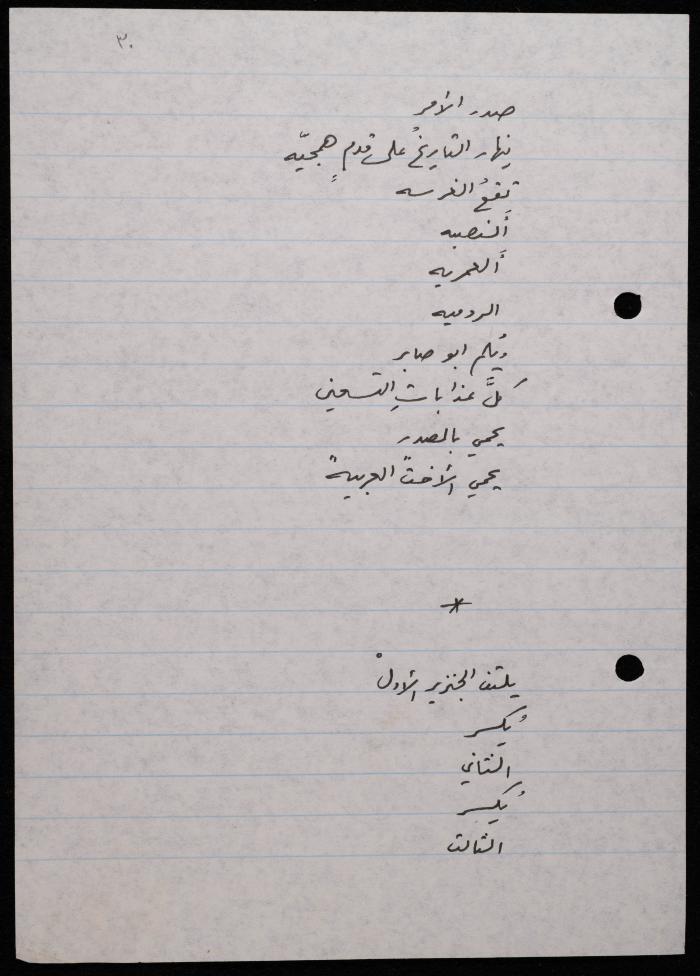 ٣٠
صدر الأمر
ينهار التاريخُ على قدمٍ همجيّه
تقعُ الفرسه
ألنصبه
ألعمريه
الروميه
ويُلم ابو صابر
كلَّ عذاباتِ التسعين
يحمي بالصدر
يحمي الأختَ العربيةَ
*
يلتف الجنزير الأولْ
يُكسر
الثاني
يُكسر
الثالث